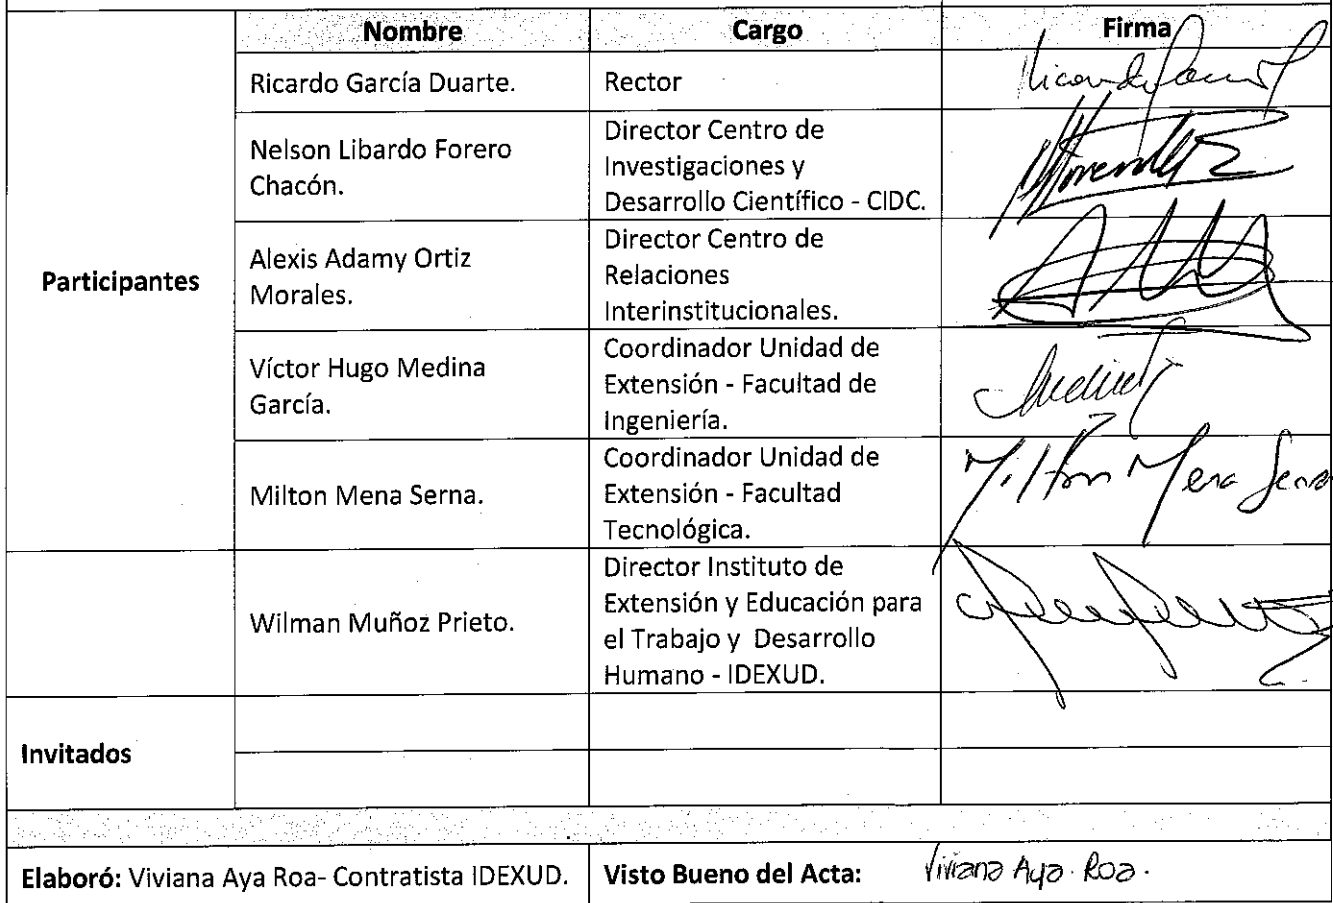 Nombre Cargo Firma
Participantes
Ricardo García Duarte. Rector
Nelson Libardo Forero
Chacón.
Director Centro de
Investigaciones y
Desarrollo Científico - CIDC.
Alexis Adamy Ortiz
Morales.
Director Centro de
Relaciones
Interinstitucionales.
Víctor Hugo Medina
García.
Coordinador Unidad de
Extensión - Facultad de
Ingeniería.
Milton Mena Serna.
Coordinador Unidad de
Extensión - Facultad
Tecnológica.
Milton Mena Serna
Wilman Muñoz Prieto.
Director Instituto de
Extensión y Educación para
el Trabajo y Desarrollo
Humano - IDEXUD.
Invitados
Elaboró: Viviana Aya Roa- Contratista IDEXUD. Visto Bueno del Acta: Viviana Aya Roa.